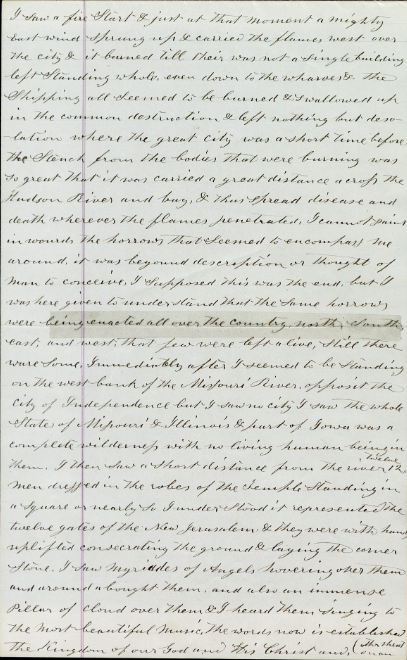 I saw a fire start & just at that moment a mighty
east wind sprung up & carried the flames west over
the city & it burned till their was not a single building
left standing whole, even down to the wharves & the
shipping all seemed to be burned & swallowed up
in the common destruction & left nothing but deso-
lation where the great city was a short time before
the stench from the bodies that were burning was
so great that it was carried a great distance across the
Hudson River and bay, & thus spread disease and
death wherever the flames penetrated. I cannot paint
in words the horrors that seemed to encompass me
around, it was beyound description or thought of
man to conceive. I supposed this was the end. but I
was here given to understand that the same horrors
were being enacted all over the country, north, south,
east, and west, that few were left alive, still there
ware some. Immediatly after I seemed to be standing
on the west bank of the Missouri River, opposit the
City of Independence but I saw no city I saw the whole
State of Missouri & Illinois & part of Iowa was a
complete wilderness with no living human being in
them. I then saw a short distance from the river 12 twelve
men dressed in the robes of the Temple standing in
a square or nearly so I understood it represented the
twelve gates of the New Jerusalem, & they were with hands
uplifted consecrating the ground & laying the corner
Stone. I saw myriades of Angels hovering over them
and around about them. and also an immense
Pillar of cloud over them & I heard them singing to
the most beautiful music, the words now is established
The Kingdom of our God and His Christ and